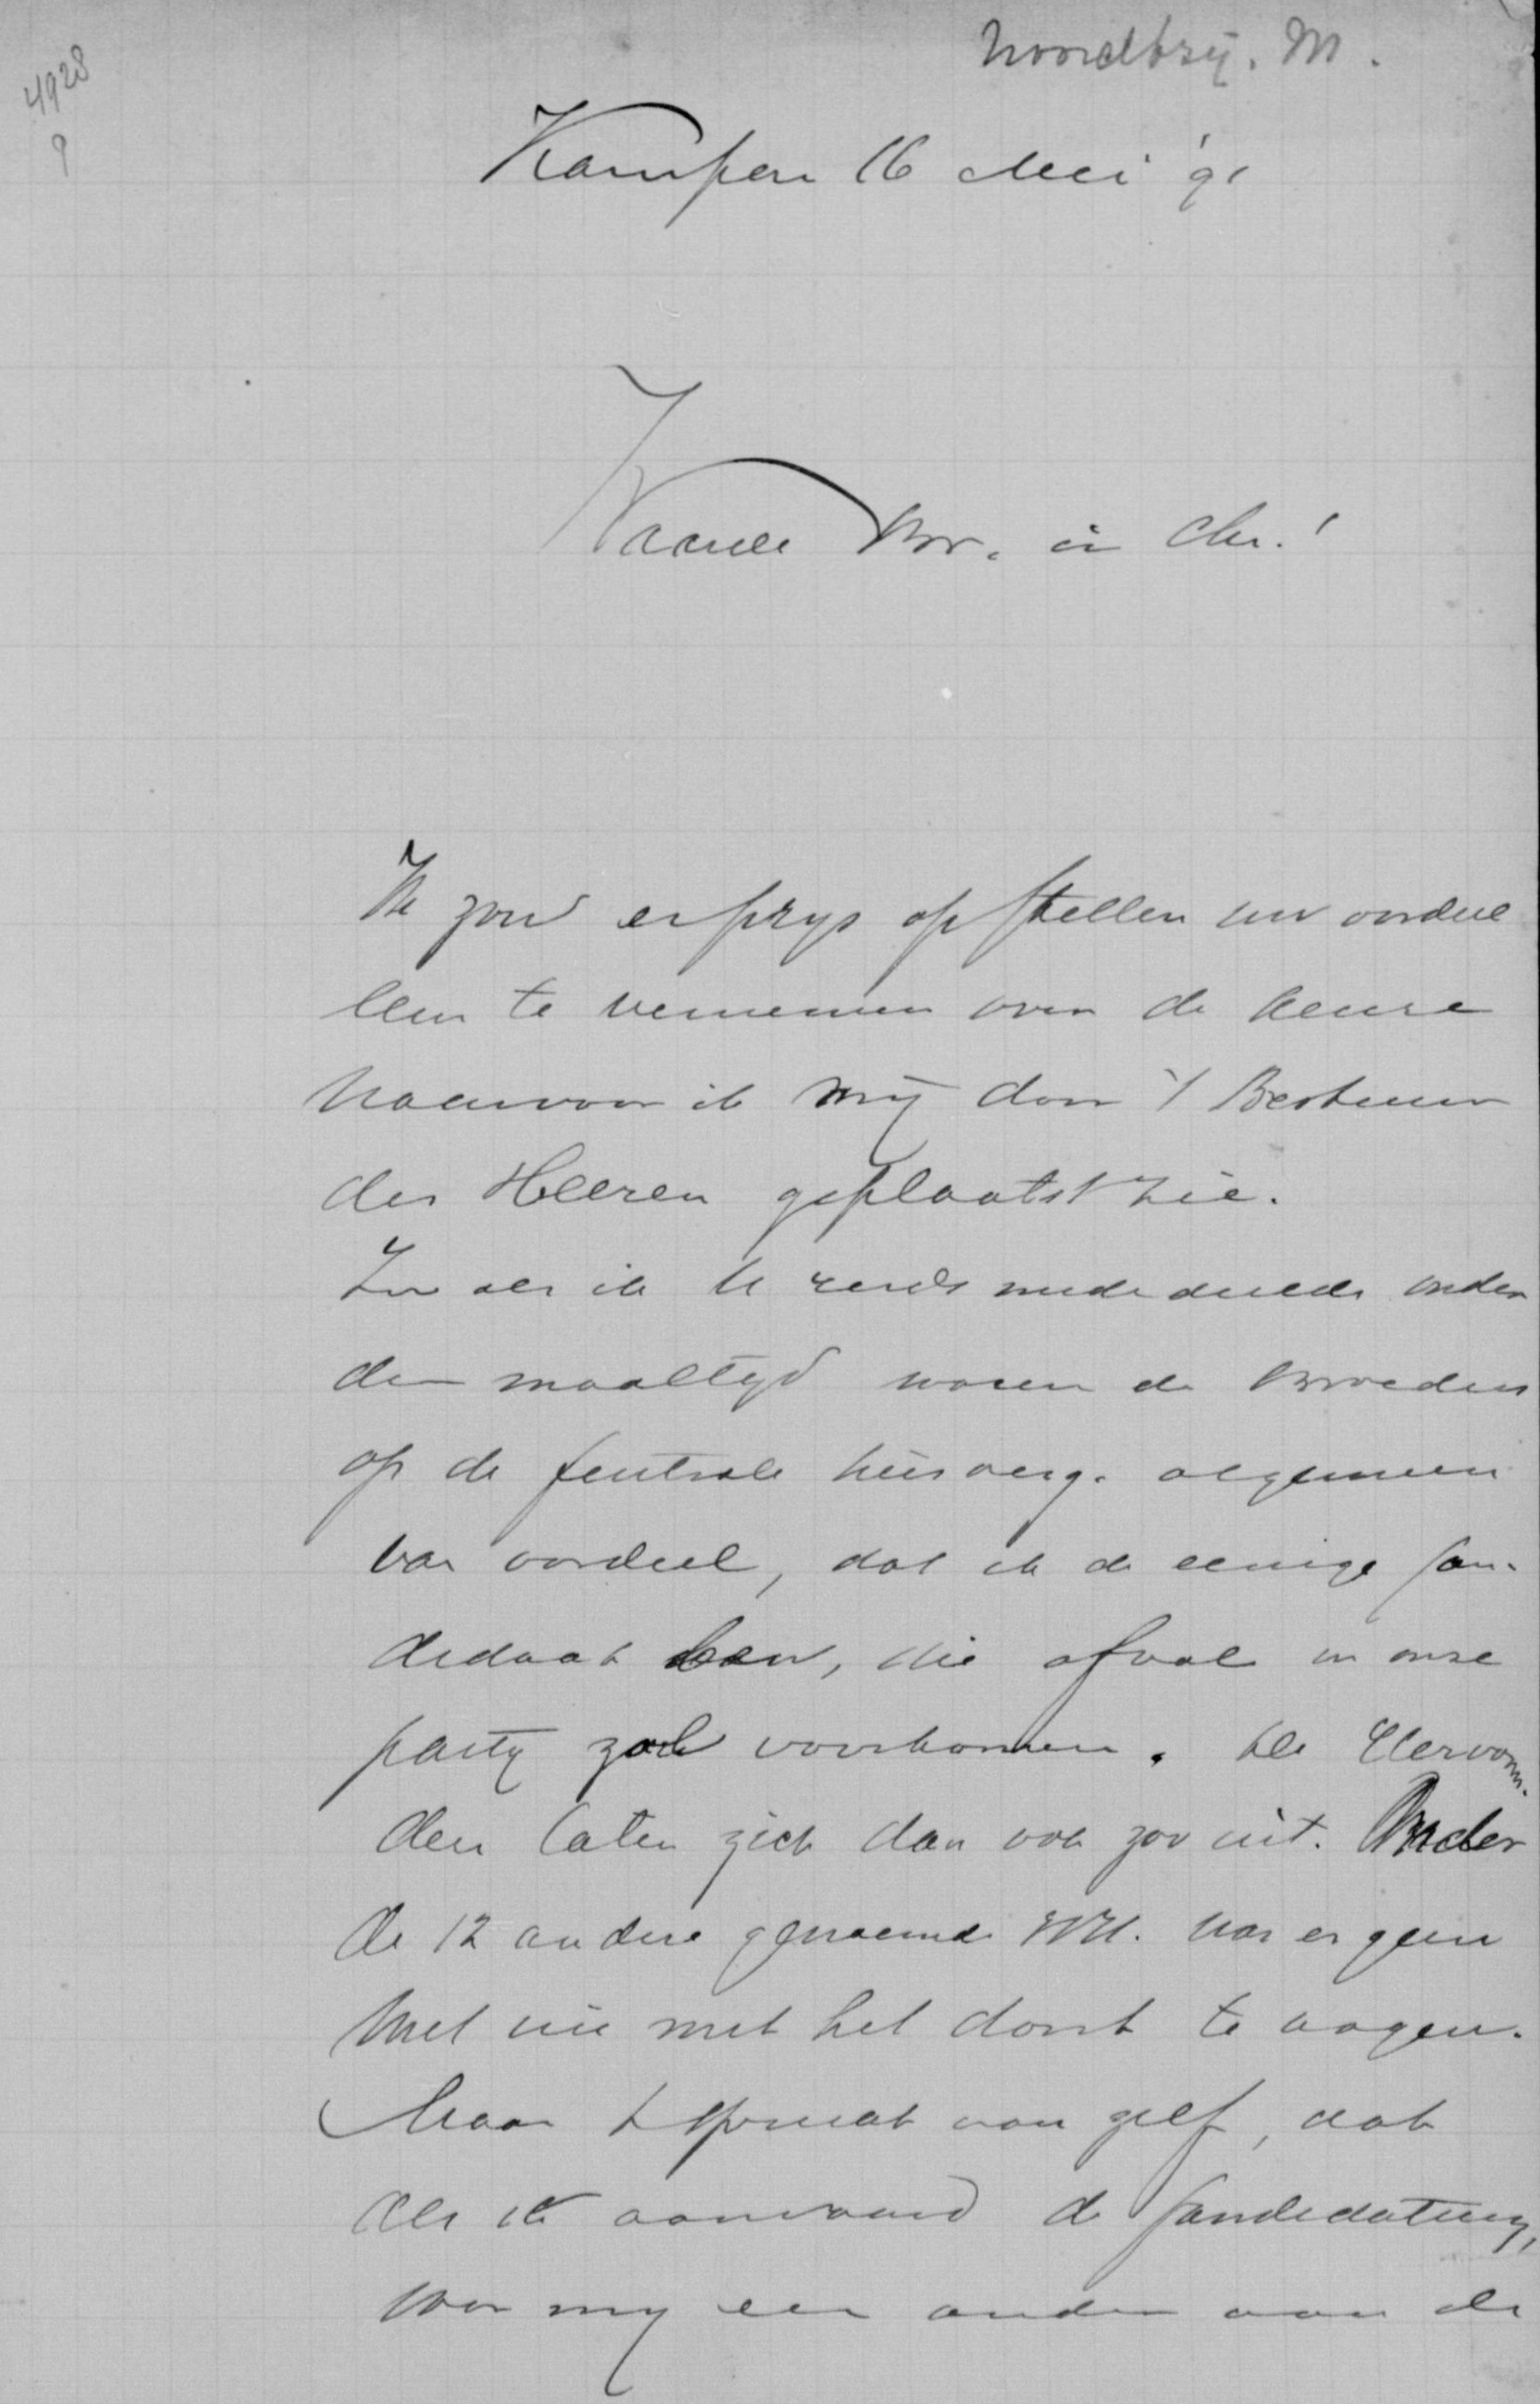 4928
Noordtzij. M.
Kampen 16 Mei '91
Waarde Br. in Chr.!
Ik zou er prijs op stellen uw oordeel
te vernemen over de keuze
waarvoor ik mij door 't Bestuur
des Heeren geplaatst zie.
Zoo als ik U reeds mededeelde onder
den maaltijd waren de broeders
op de Centrale kiesverg. algemeen
van oordeel, dat ik de eenige Can-
didaat ben, die afval in onze
partij zal voorkomen. De Hervorm-
den laten zich dan ook zoo uit. Onder
de 12 andere genoemde HH. was er geen
met wie men het dorst te wagen.
Maar 't spreekt van zelf, dat
als ik aanvaard de Candidatuur,
voor mij een ander aan de